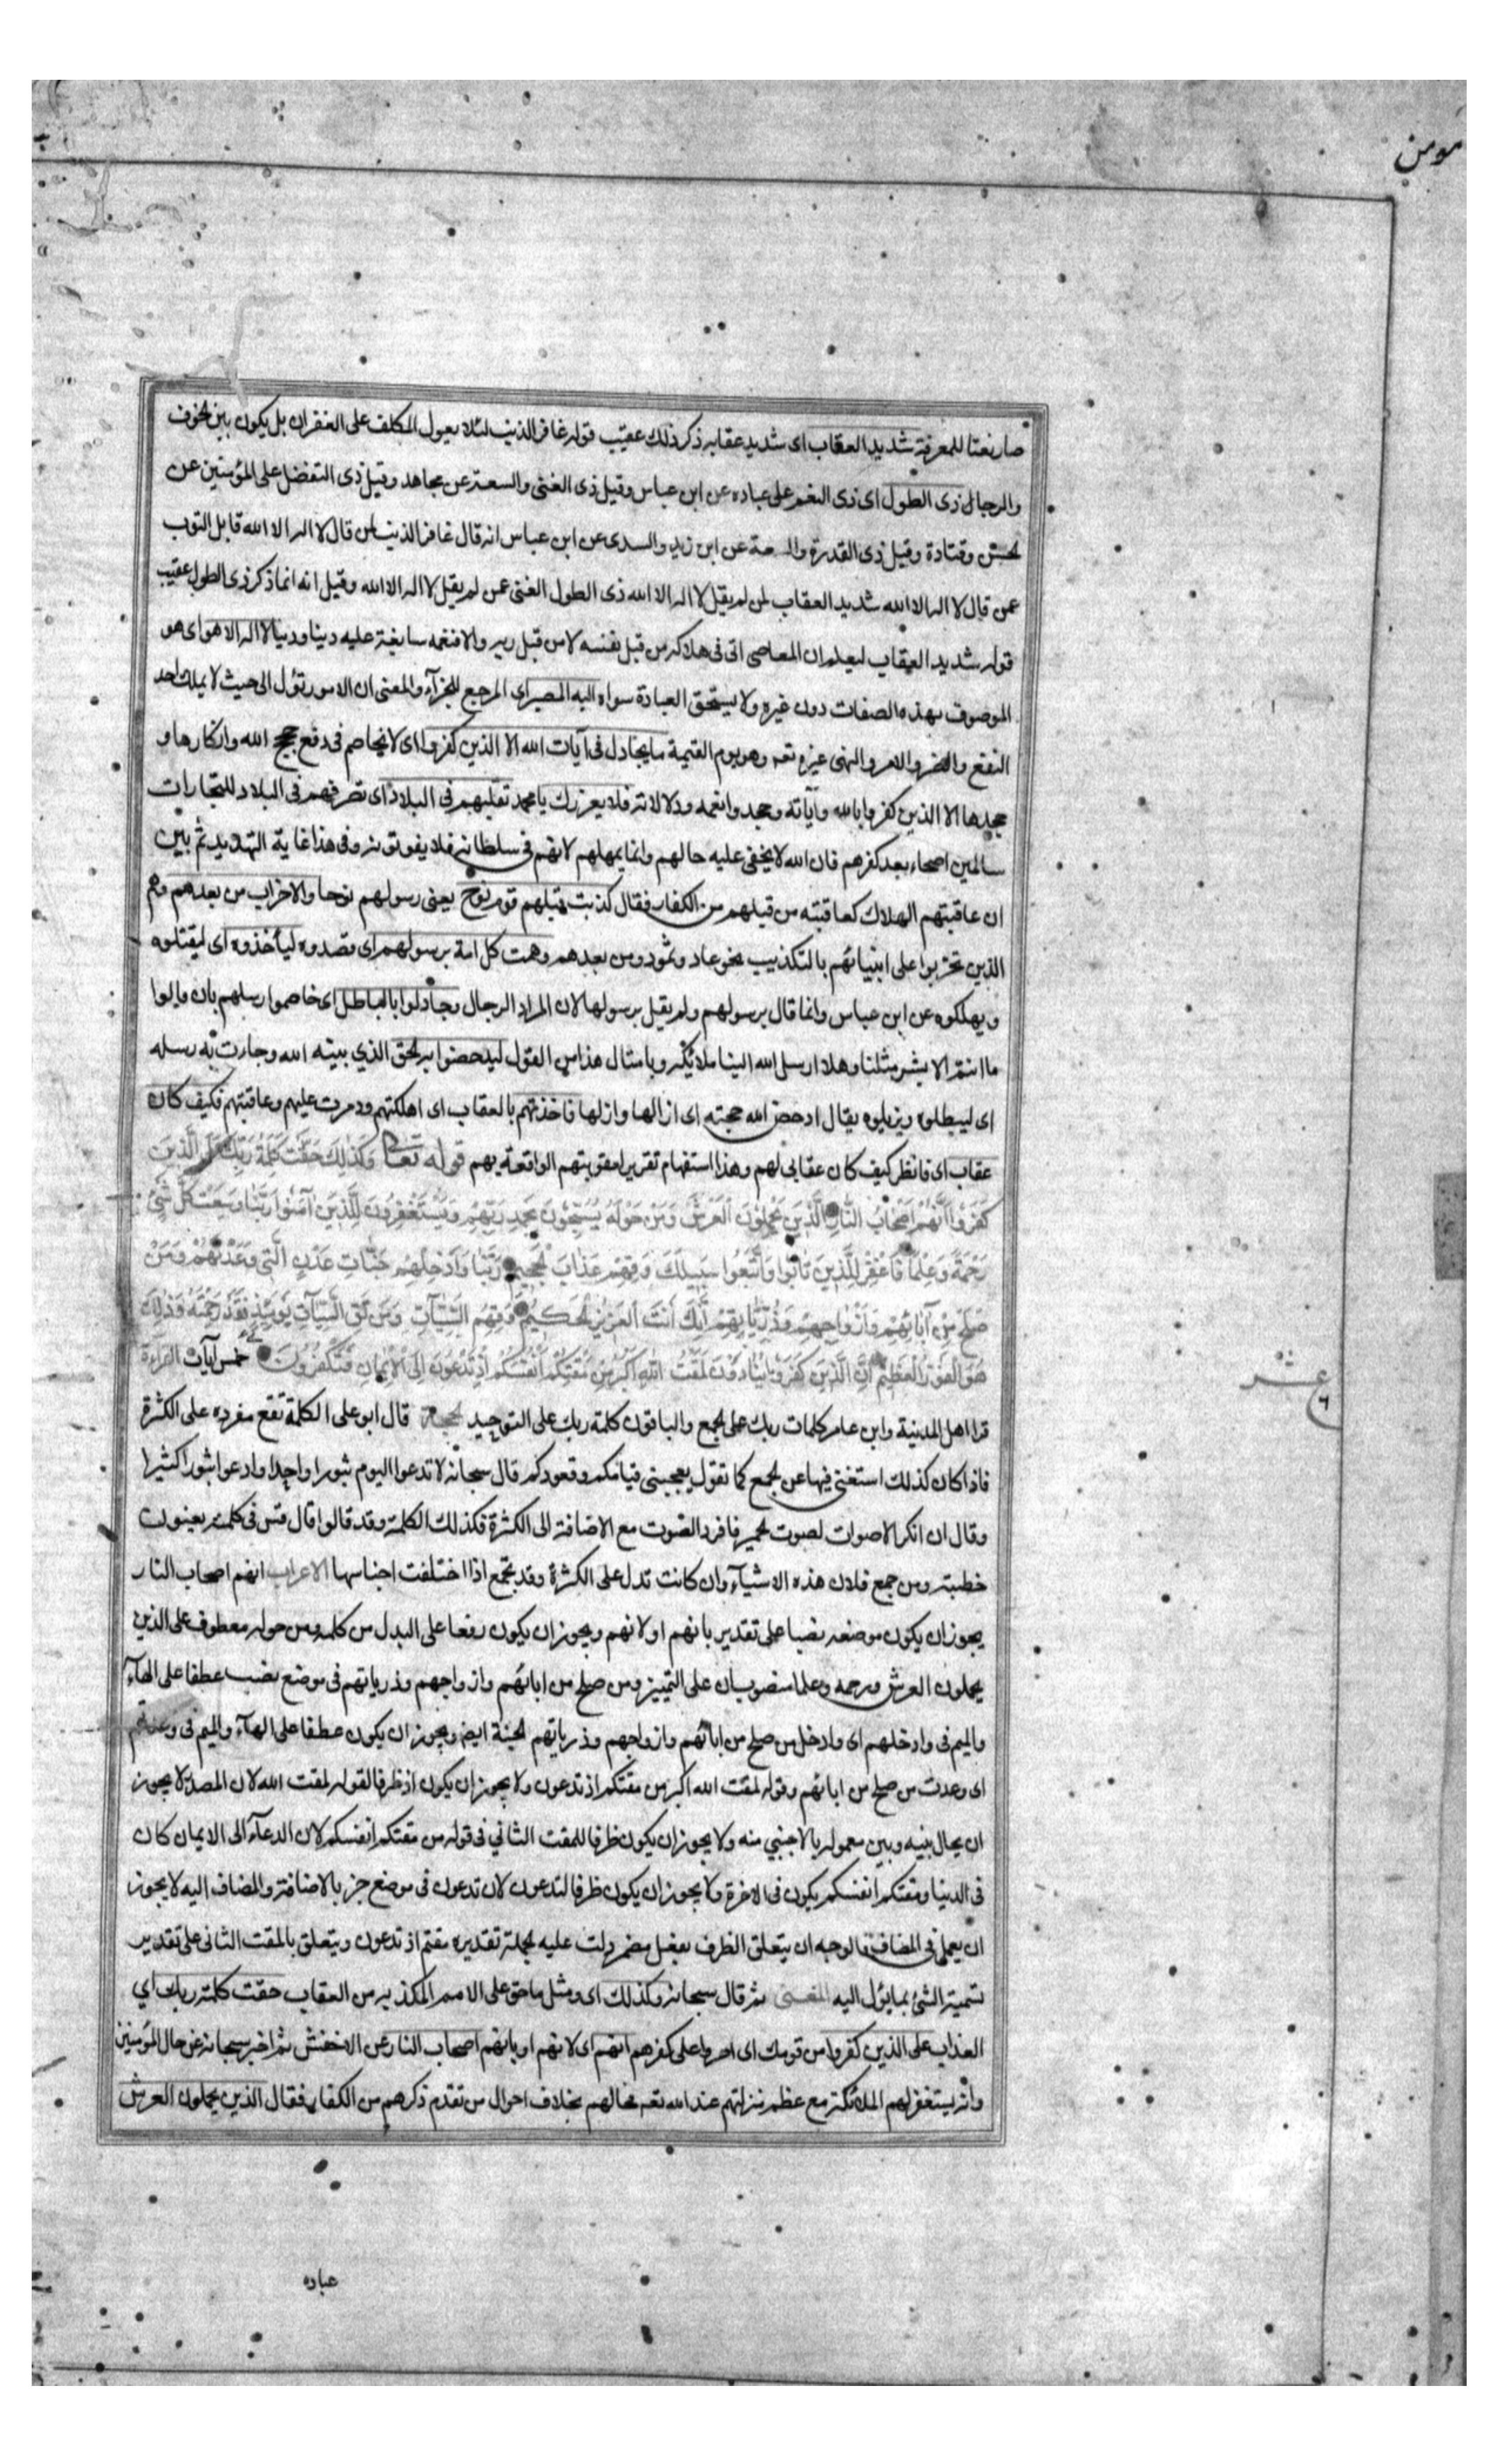 مومن
صار نعتا للمعرفة شديد العقاب اى شديد عقابه ذكر ذلك عقيب قوله غافر الذنب لئلا يعول المكلف على الغفران بل يكون بين الخوف
والرجا ذى الطول اى ذى النعم على عباده عن ابن عباس وقيل ذى الغنى والسعة عن مجاهد وقيل ذى التفضل على المؤمنين عن
الحسن وقتادة وقيل ذى القدرة والسعة عن ابن زيد والسدى عن ابن عباس انه قال غافر الذنب لمن قال لا اله الا الله قابل التوب
عمن قال لا اله الا الله شديد العقاب لمن لم يقل لا اله الا الله ذى الطول الغنى عمن لم يقل لا اله الا الله وقيل انه انما ذكر ذى الطول عقيب
قوله شديد العقاب ليعلم ان المعاصى اتى فى هلاكه من قبل نفسه لا من قبل ربه والا فنعمه سابغة عليه دينا ودنيا لا اله الا هو اى هو
الموصوف بهذه الصفات دون غيره ولا يستحق العبادة سواه اليه المصير اى المرجع للجزآء والمعنى ان الامور تؤل الى حيث لا يملك احد
النفع والضر والامر والنهى غيره تعه وهو يوم القيمة ما يجادل فى آيات الله الا الذين كفروا اى لا يخاصم فى دفع حجج الله وانكارها و
جحدها الا الذين كفروا بالله وآياته وجحدوا نعمه ودلالاته فلا يغررك يا محمد تقلبهم فى البلاد اى تصرفهم فى البلاد للتجارات
سالمين اصحاء بعد كفرهم فان الله لا يخفى عليه حالهم وانما يمهلهم لانهم فى سلطانه فلا يفوتونه وفى هذا غاية التهديد ثم بين
ان عاقبتهم الهلاك كعاقبته من قبلهم من الكفار فقال كذبت قبلهم قوم نوح يعنى رسولهم نوحا والاحزاب من بعدهم وهم
الذين تحزبوا على انبيائهم بالتكذيب نحو عاد وثمود ومن بعدهم وهمت كل امة برسولهم اى قصدوه ليأخذوه اى ليقتلوه
ويهلكوه عن ابن عباس وانما قال برسولهم ولم يقل برسولها لان المراد الرجال وجادلوا بالباطل اى خاصموا رسلهم بان قالوا
ما انتم الا بشر مثلنا وهلا ارسل الله الينا ملائكة وبامثال هذا من القول ليدحضوا به الحق الذي بينه الله وجاءت به رسله
اى ليبطلوه ويزيلوه يقال ادحض الله حجته اى ازالها وازلها فاخذتهم بالعقاب اى اهلكتهم ودمرت عليهم وعاقبتهم فكيف كان
عقاب اى فانظر كيف كان عقابى لهم وهذا استفهام تقرير لعقوبتهم الواقعة بهم قوله تعالى وَكَذٰلِكَ حَقَّتْ كَلِمَةُ رَبِّكَ عَلَى الَّذينَ
كَفَرُوا اَنَّهُمْ اَصْحَابُ النَّارِ الَّذينَ يَحْمِلُونَ الْعَرْشَ وَمَنْ حَوْلَهُ يُسَبِّحُونَ بِحَمْدِ رَبِّهِمْ وَيَسْتَغْفِرُونَ لِلَّذِينَ اٰمَنُوا رَبَّنَا وَسِعْتَ كُلَّ شَىْءٍ
رَحْمَةً وَعِلْمًا فَاغْفِرْ لِلَّذِينَ تَابُوا وَاتَّبَعُوا سَبِيلَكَ وَقِهِمْ عَذَابَ الْجَحِيمِ رَبَّنَا وَاَدْخِلْهُمْ جَنَّاتِ عَدْنٍ الَّتِى وَعَدْتَهُمْ وَمَنْ
صَلَحَ مِنْ آبَائِهِمْ وَاَزْوَاجِهِمْ وَذُرِّيَّاتِهِمْ اِنَّكَ اَنْتَ الْعَزِيزُ الْحَكِيمُ وَقِهِمُ السَّيِّئَاتِ وَمَنْ تَقِ السَّيِّئَاتِ يَوْمَئِذٍ فَقَدْ رَحِمْتَهُ وَذٰلِكَ
هُوَ الْفَوْزُ الْعَظِيمُ اِنَّ الَّذِينَ كَفَرُوا يُنَادَوْنَ لَمَقْتُ اللهِ اَكْبَرُ مِنْ مَقْتِكُمْ اَنْفُسَكُمْ اِذْ تُدْعَوْنَ اِلَى الْاِيمَانِ فَتَكْفُرُونَ خمس آيات القراءة
عشر
٦
قرا اهل المدينة وابن عامر كلمات ربك على الجمع والباقون كلمة ربك على التوحيد الحجة قال ابو على الكلمة تقع مفرده على الكثرة
فاذا كان كذلك استغنى فيها عن الجمع كما تقول يعجبنى قيامكم وقعودكم قال سبحانه لا تدعوا اليوم ثبورا واحدا وادعوا ثبورا كثيرا
وقال ان انكر الاصوات لصوت الحمير فافرد الصوت مع الاضافة الى الكثرة فكذلك الكلمة وقد قالوا قال قس فى كلمته يعنون
خطبته ومن جمع فلان هذه الاشيآء وان كانت تدل على الكثرة وقد تجمع اذا اختلفت اجناسها الاعراب انهم اصحاب النار
يجوز ان يكون موضعه نصبا على تقدير بانهم او لانهم ويجوز ان يكون رفعا على البدل من كلمه ومن حوله معطوف على الذين
يحملون العرش ورحمه وعلما منصوبان على التمييز ومن صلح من ابائهم وازواجهم وذرياتهم فى موضع نصب عطفا على الهآء
والميم فى وادخلهم اى وادخل من صلح من ابائهم وازواجهم وذرياتهم الجنة ايض ويجوز ان يكون عطفا على الهآء والميم فى وعدتهم
اى وعدت من صلح من ابائهم وقوله لمقت الله اكبر من مقتكم اذ تدعون ولا يجوز ان يكون اذ ظرفا لقوله لمقت الله لان المصدر لا يجوز
ان يحال بينه وبين معموله بالاجنبي منه ولا يجوز ان يكون ظرفا للمقت الثاني فى قوله من مقتكم انفسكم لان الدعآء الى الايمان كان
فى الدنيا ومقتكم انفسكم يكون فى الاخرة ولا يجوز ان يكون ظرفا لتدعون لان تدعون فى موضع جر بالاضافة والمضاف اليه لا يجوز
ان يعمل فى المضاف فالوجه ان يتعلق الظرف بفعل مضمر دلت عليه الجملة تقديره مقتم اذ تدعون ويتعلق بالمقت الثانى على تقدير
تسمية الشئ بما يؤل اليه المعنى ثم قال سبحانه وكذلك اى ومثل ما حق على الامم المكذبه من العقاب حقت كلمة ربك اي
العذاب على الذين كفروا من قومك اى اصروا على كفرهم انهم اى لانهم او بانهم اصحاب النار عن الاخفش ثم اخبر سبحانه عن حال المؤمنين
وانه يستغفر لهم الملائكة مع عظم منزلتهم عند الله تعه فحالهم بخلاف احوال من تقدم ذكرهم من الكفار فقال الذين يحملون العرش
عباده